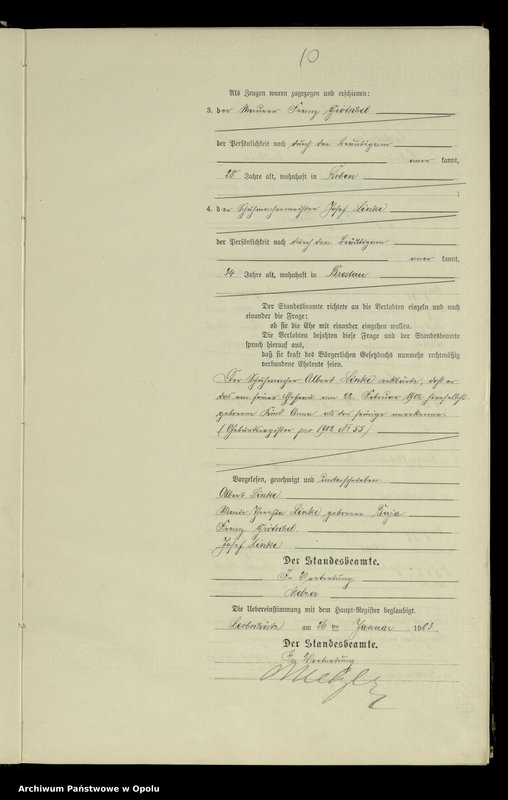 10
Als Zeugen waren zugezogen und erschienen:
3. der Maurer Franz
der Persönlichkeit nach durch den Bräutigam
aner kannt,
28 Jahre alt, wohnhaft in Koben
;
4. der Schuhmachermeister Josef Linke
der Persönlichkeit nach durch den Bräutigam
aner kannt,
34 Jahre alt, wohnhaft in Breslau
Der Standesbeamte richtete an die Verlobten einzeln und nach
einander die Frage:
ob sie die Ehe mit einander eingehen wollen.
Die Verlobten bejahten diese Frage und der Standesbeamte
sprach hierauf aus,
daß sie kraft des Bürgerlichen Gesetzbuchs nunmehr rechtmäßig
verbundene Eheleute seien.
Der Schuhmacher Albert Linke erklärte, daß er
das von seiner Ehefrau am 22. Februar 1902
geborene Kind Anna als das seinige anerkenne.
(Geburtsregister pro 1902 No 55)
Vorgelesen, genehmigt und unterschrieben
Albert Linke
Maria Theresia Linke geborene
Franz
Josef Linke
Der Standesbeamte.
In Vertretung
Die Uebereinstimmung mit dem Haupt-Register beglaubigt
am 26 ten Januar 1903.
Der Standesbeamte.
In Vertretung
Archiwum Państwowe w Opolu